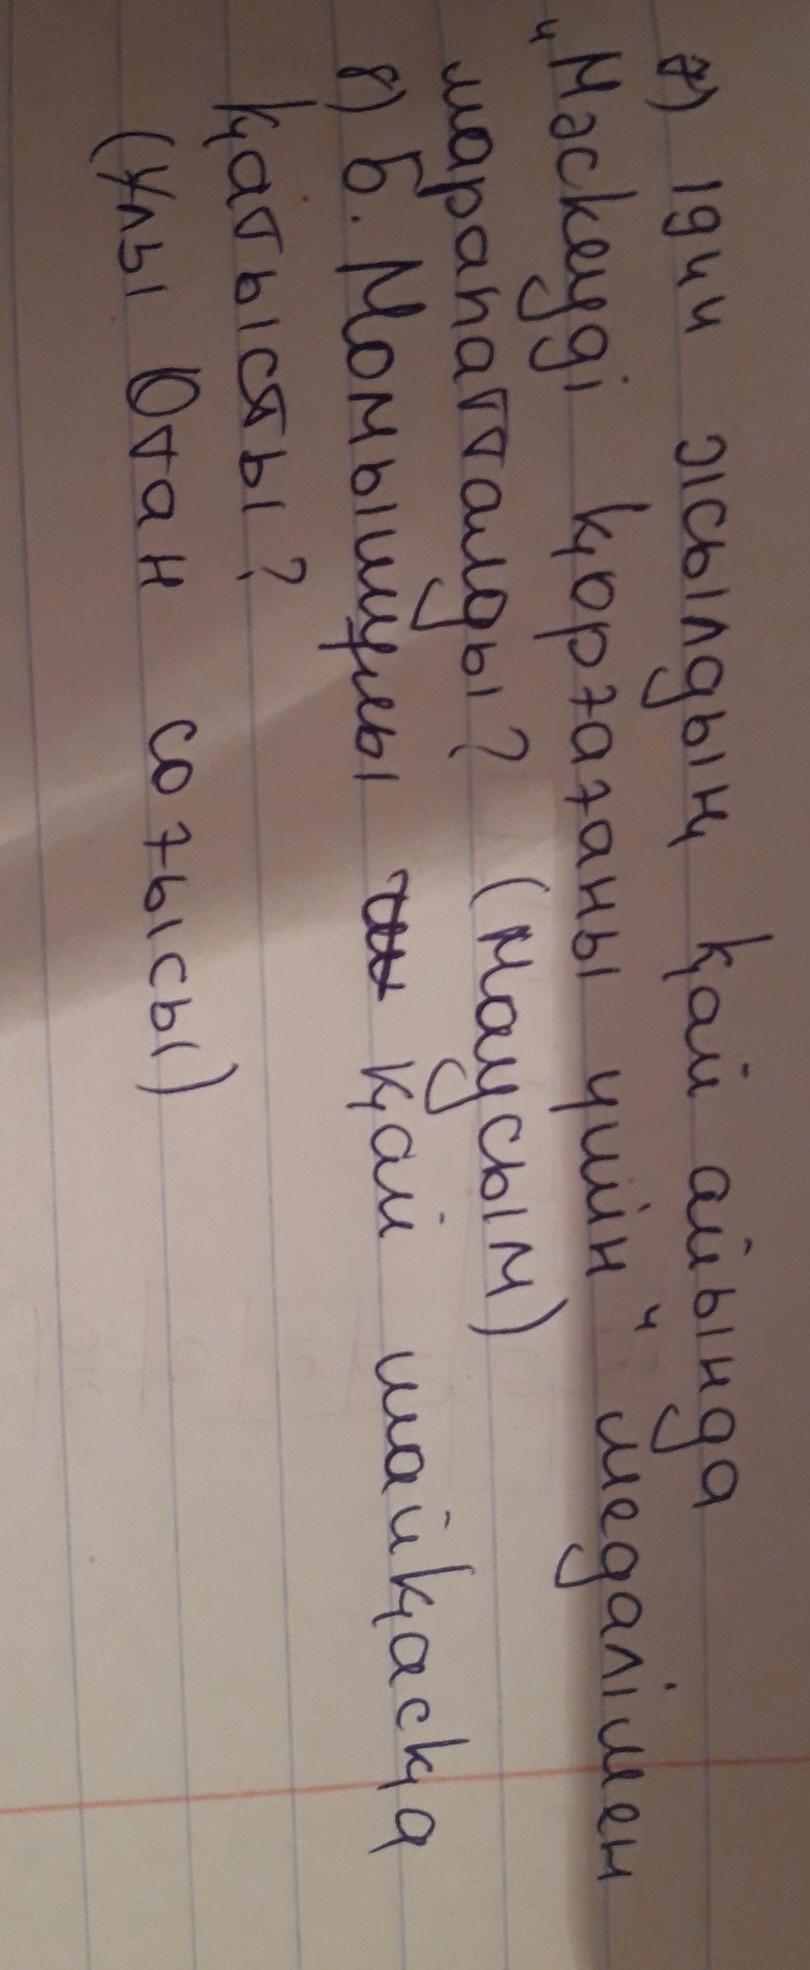 7) 1944 жылдың қай айында
"Мәскеуді қорғағаны үшін" медалімен
марапатталды? (Маусым)
8) Б. Момышұлы қай шайқасқа
қатысты?
(Ұлы Отан соғысы)